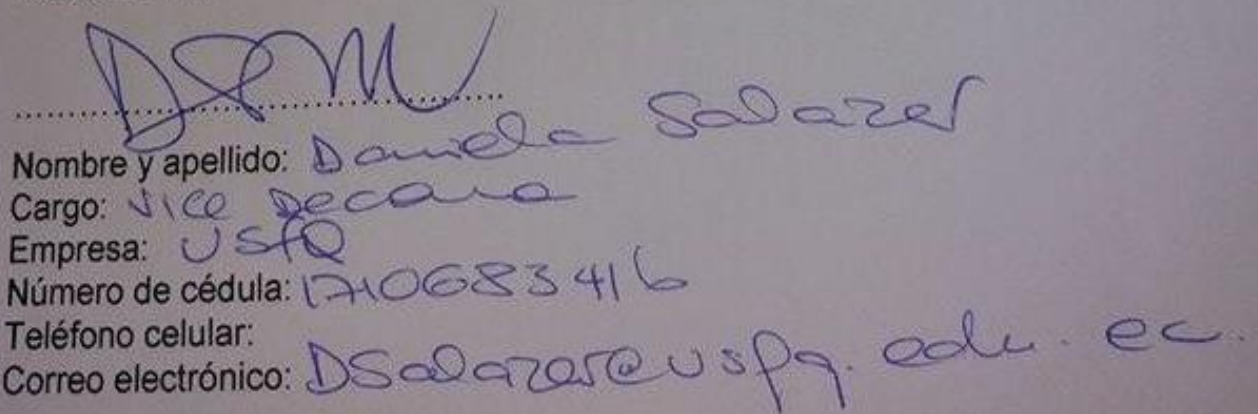 Nombre y apellido: Daniela Salazar
Cargo: Vice Decana
Empresa: USFQ
Número de cédula: 1710683416
Teléfono celular:
Correo electrónico: DSalazar@usfq.edu.ec.